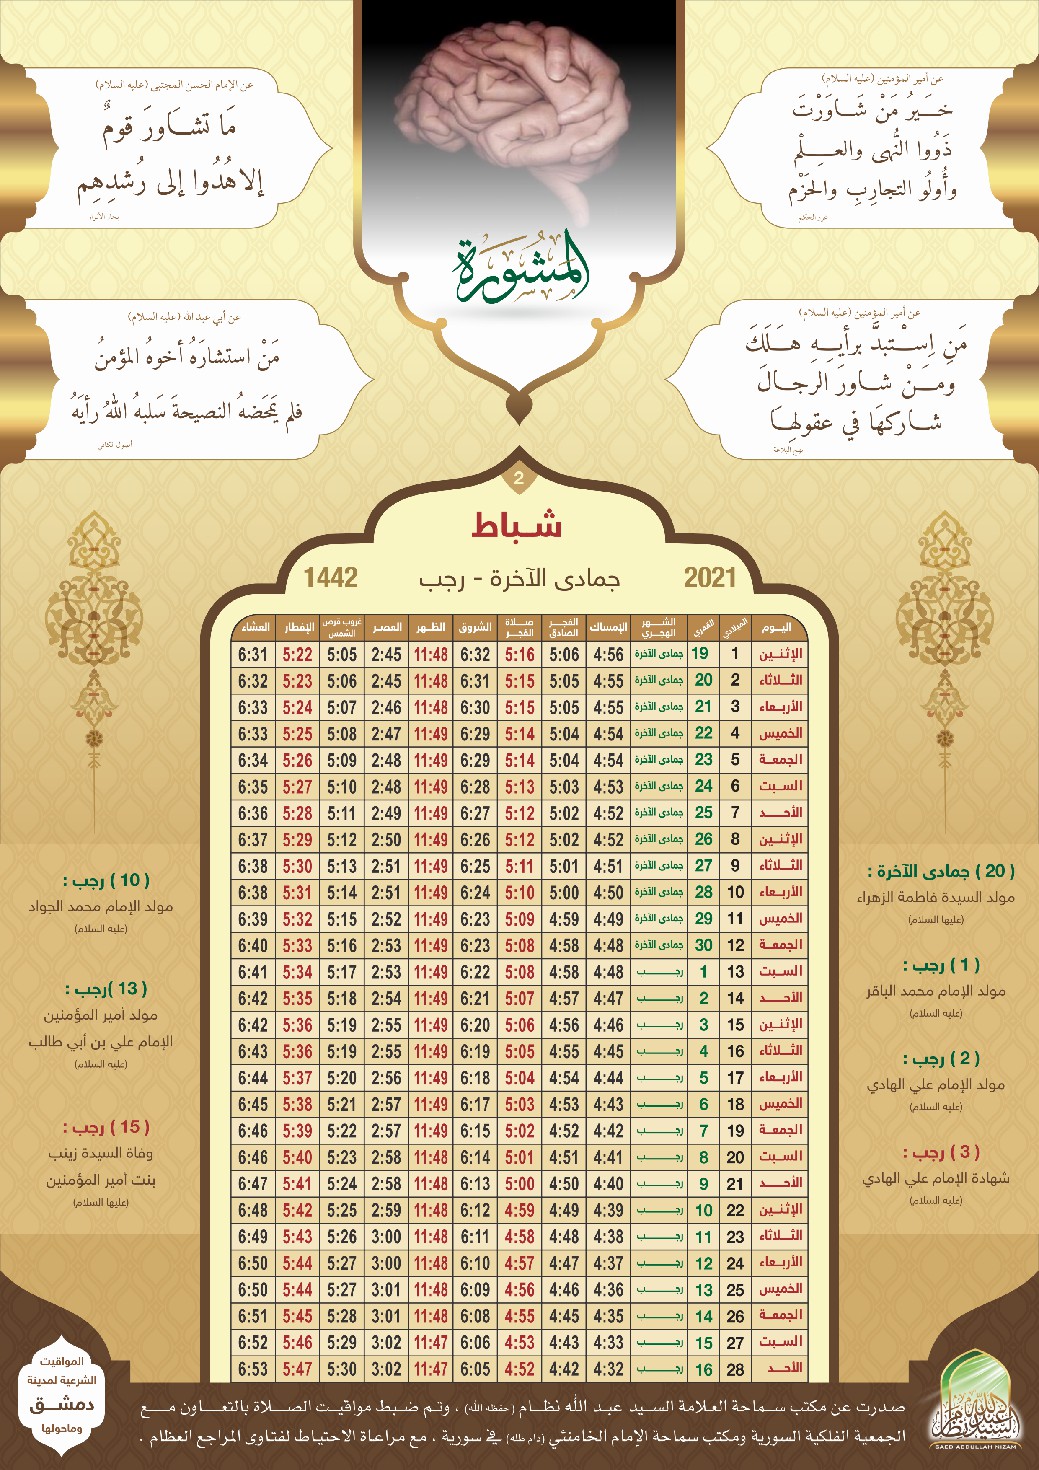 عن أمير المؤمنين (عليه السلام)
خَيرُ مَنْ شَاوَرْتَ
ذَوُوا النُّهى والعِلْمِ
وأُولُو التجارِبِ والحَزْمِ
غرر الحكم
عن الإمام الحسن المجتبى (عليه السلام)
مَا تشَاورَ قومٌ
إلا هُدُوا إلى رُشدِهِم
المشورة
عن أمير المؤمنين (عليه السلام)
مَنِ اِسْتبدَّ برأيِهِ هَلَكَ
ومَنْ شاورَ الرجالَ
شاركهَا في عقولِهَا
نهج البلاغة
عن أبي عبد الله (عليه السلام)
مَنْ استشارَهُ أخوهُ المؤمنُ
فلم يَمحَضهُ النصيحةَ سَلبهُ اللهُ رأيَهُ
أصول الكافي
2
شباط
2021 جمادى الآخرة - رجب 1442
اليوم الميلادي القمري الشهر الهجري الإمساك الفجر الصادق صلاة الفجر الشروق الظهر العصر غروب قرص الشمس الإفطار العشاء
الإثنين 1 19 جمادى الآخرة 4:56 5:06 5:16 6:32 11:48 2:45 5:05 5:22 6:31
الثلاثاء 2 20 جمادى الآخرة 4:55 5:05 5:15 6:31 11:48 2:45 5:06 5:23 6:32
الأربعاء 3 21 جمادى الآخرة 4:55 5:05 5:15 6:30 11:48 2:46 5:07 5:24 6:33
الخميس 4 22 جمادى الآخرة 4:54 5:04 5:14 6:29 11:49 2:47 5:08 5:25 6:33
الجمعة 5 23 جمادى الآخرة 4:54 5:04 5:14 6:29 11:49 2:48 5:09 5:26 6:34
السبت 6 24 جمادى الآخرة 4:53 5:03 5:13 6:28 11:49 2:48 5:10 5:27 6:35
الأحد 7 25 جمادى الآخرة 4:52 5:02 5:12 6:27 11:49 2:49 5:11 5:28 6:36
الإثنين 8 26 جمادى الآخرة 4:52 5:02 5:12 6:26 11:49 2:50 5:12 5:29 6:37
الثلاثاء 9 27 جمادى الآخرة 4:51 5:01 5:11 6:25 11:49 2:51 5:13 5:30 6:38
الأربعاء 10 28 جمادى الآخرة 4:50 5:00 5:10 6:24 11:49 2:51 5:14 5:31 6:38
الخميس 11 29 جمادى الآخرة 4:49 4:59 5:09 6:23 11:49 2:52 5:15 5:32 6:39
الجمعة 12 30 جمادى الآخرة 4:48 4:58 5:08 6:23 11:49 2:53 5:16 5:33 6:40
السبت 13 1 رجب 4:48 4:58 5:08 6:22 11:49 2:53 5:17 5:34 6:41
الأحد 14 2 رجب 4:47 4:57 5:07 6:21 11:49 2:54 5:18 5:35 6:42
الإثنين 15 3 رجب 4:46 4:56 5:06 6:20 11:49 2:55 5:19 5:36 6:42
الثلاثاء 16 4 رجب 4:45 4:55 5:05 6:19 11:49 2:55 5:19 5:36 6:43
الأربعاء 17 5 رجب 4:44 4:54 5:04 6:18 11:49 2:56 5:20 5:37 6:44
الخميس 18 6 رجب 4:43 4:53 5:03 6:17 11:49 2:57 5:21 5:38 6:45
الجمعة 19 7 رجب 4:42 4:52 5:02 6:15 11:49 2:57 5:22 5:39 6:46
السبت 20 8 رجب 4:41 4:51 5:01 6:14 11:48 2:58 5:23 5:40 6:46
الأحد 21 9 رجب 4:40 4:50 5:00 6:13 11:48 2:58 5:24 5:41 6:47
الإثنين 22 10 رجب 4:39 4:49 4:59 6:12 11:48 2:59 5:25 5:42 6:48
الثلاثاء 23 11 رجب 4:38 4:48 4:58 6:11 11:48 3:00 5:26 5:43 6:49
الأربعاء 24 12 رجب 4:37 4:47 4:57 6:10 11:48 3:00 5:27 5:44 6:50
الخميس 25 13 رجب 4:36 4:46 4:56 6:09 11:48 3:01 5:27 5:44 6:50
الجمعة 26 14 رجب 4:35 4:45 4:55 6:08 11:48 3:01 5:28 5:45 6:51
السبت 27 15 رجب 4:33 4:43 4:53 6:06 11:47 3:02 5:29 5:46 6:52
الأحد 28 16 رجب 4:32 4:42 4:52 6:05 11:47 3:02 5:30 5:47 6:53
( 20 ) جمادى الآخرة :
مولد السيدة فاطمة الزهراء
(عليها السلام)
( 1 ) رجب :
مولد الإمام محمد الباقر
(عليه السلام)
( 2 ) رجب :
مولد الإمام علي الهادي
(عليه السلام)
( 3 ) رجب :
شهادة الإمام علي الهادي
(عليه السلام)
( 10 ) رجب :
مولد الإمام محمد الجواد
(عليه السلام)
( 13 )رجب :
مولد أمير المؤمنين
الإمام علي بن أبي طالب
(عليه السلام)
( 15 ) رجب :
وفاة السيدة زينب
بنت أمير المؤمنين
(عليها السلام)
صدرت عن مكتب سماحة العلامة السيد عبد الله نظام (حفظه الله) ، وتم ضبط مواقيت الصلاة بالتعاون مع
الجمعية الفلكية السورية ومكتب سماحة الإمام الخامنئي (دام ظله) في سورية ، مع مراعاة الاحتياط لفتاوى المراجع العظام .
المواقيت
الشرعية لمدينة
دمشق
وماحولها
SAED ABDULLAH NIZAM